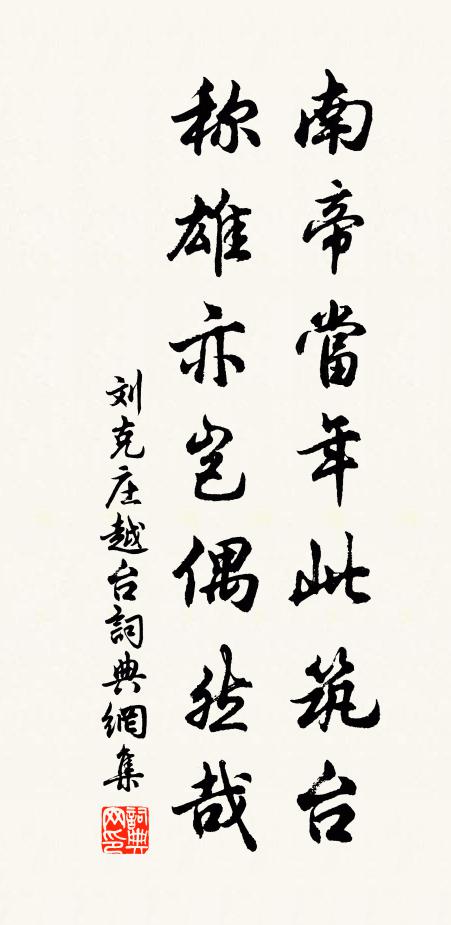 南帝當年此筑台
称雄亦岂偶然哉
刘克庄越台詞典網集
詞典网印